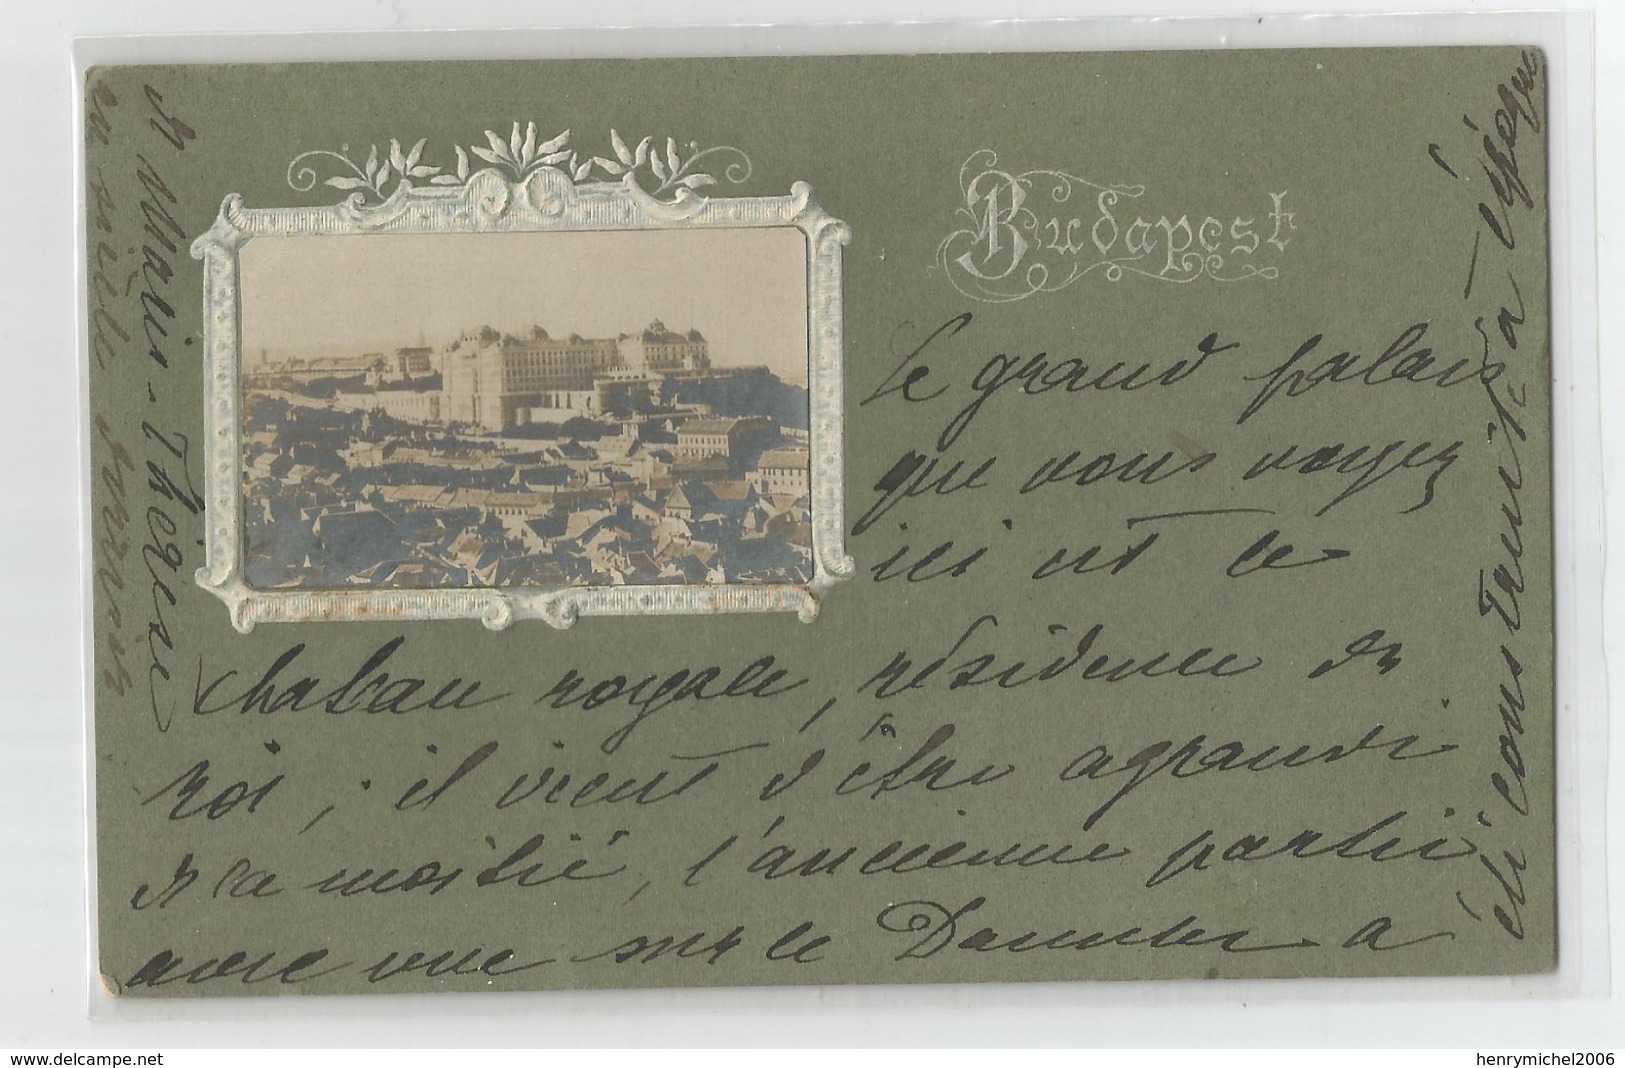 Budapest
Le grand palais
que vous voyez
ici est le
chateau royale, résidence du
roi; il vient d'être agrandi
de sa moitié, l'ancienne partie
avec vue sur le Danube a
été construite à l'époque
de Marie-Thérèse
au siècle dernier
www.delcampe.net
henrymichel2006